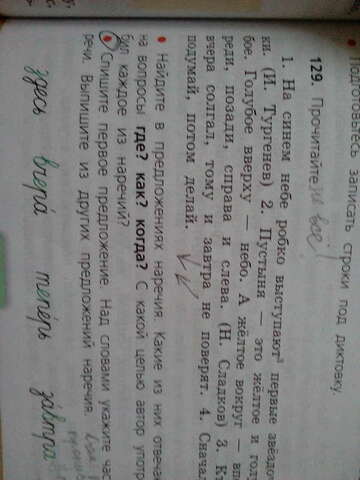 Подготовьтесь записать строки под диктовку.
129. Прочитайте
1. На синем небе робко выступают³ первые звёздоч
ки. (И. Тургенев) 2. Пустыня — это жёлтое и голу
бое. Голубое вверху — небо. А жёлтое вокруг — впе
реди, позади, справа и слева. (Н. Сладков) 3. Кт
вчера солгал, тому и завтра не поверят. 4. Снача
подумай, потом делай.
• Найдите в предложениях наречия. Какие из них отвеча
на вопросы где? как? когда? С какой целью автор употр
бил каждое из наречий?
• Спишите первое предложение. Над словами укажите час
речи. Выпишите из других предложений наречия.
здесь вчера́ тепе́рь за́втра